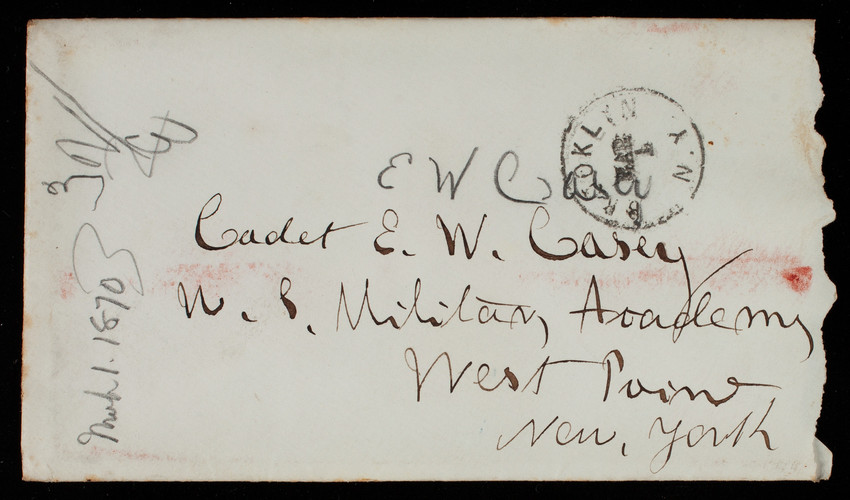 BROOKLYN N.Y.
MAR
1
E W Casey
Cadet E. W. Casey
U. S. Military Academy
West Point
New, York
March 1. 1870